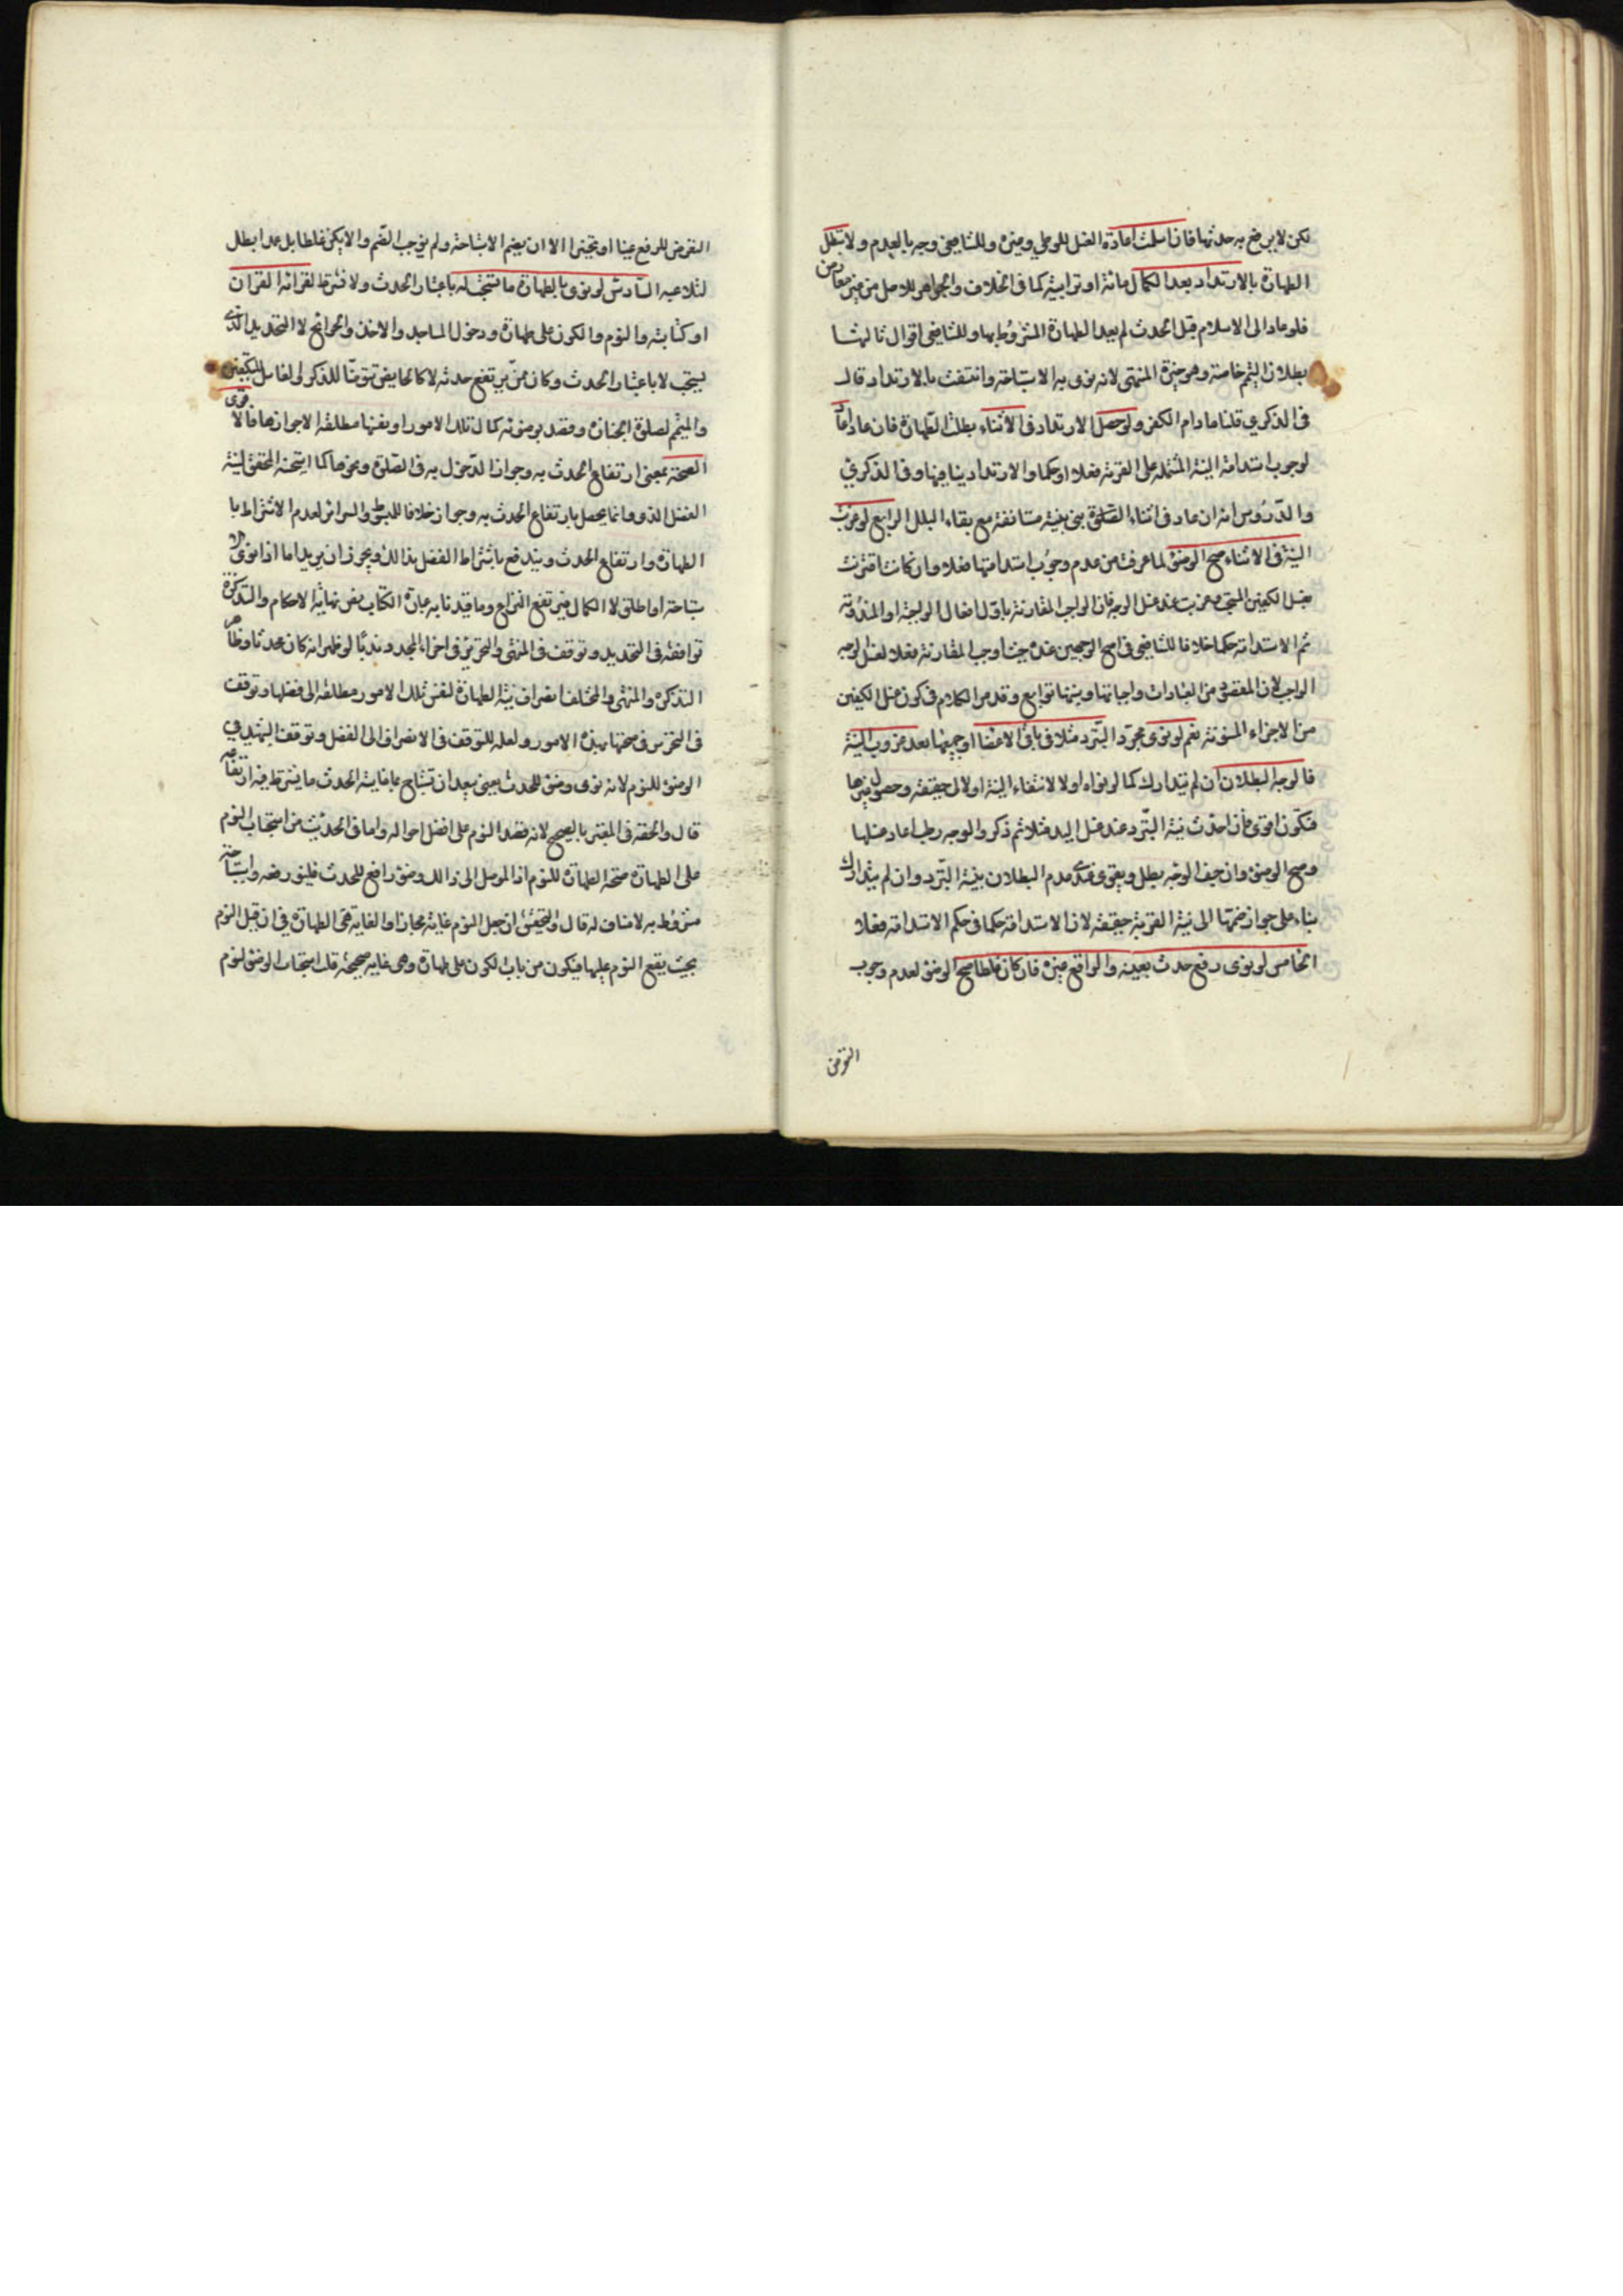 لكن لا يرتفع به حدثها فان اسلمت اعادة الغسل للوطي وغيره وللشافعي وجه بالعدم ولا تبطل
الطهارة بالارتداد بعد الكمال مائية او ترابية كما في الخلاف والجواهر للاصل من غير معارض
فلو عاد الى الاسلام قبل الحدث لم يعد الطهارة المشروط بها وللشافعي اقوال ثالثها
بطلان التيمم خاصة وهو خيرة المنتهى لانه نوى به الاستباحة وانتفت بالارتداد قال
في الذكري قلنا ما دام الكفر ولو حصل الارتداد في الاثناء بطلت الطهارة فان عاد اعاد
لوجوب استدامة النية المشتملة على القربة فعلا او حكما والارتداد ينافيها وفي الذكري
والدروس انه ان عاد في اثناء بنى بنية مستانفة مع بقاء البلل الرابع لو عزبت
النية في الاثناء صح الوضوء لما عرفت من عدم وجوب استدامتها فعلا وان كانت اقترنت
بغسل الكفين المستحب وعزبت عند غسل الوجه فان الواجب المقارنة باول افعال الواجبة او المندوبة
ثم الاستدامة حكما خلافا للشافعي في اصح الوجهين عنده حيث اوجب المقارنة فعلا لغسل الوجه
الواجب لان المقصود من العبادات واجباتها وسننها توابع وقد مر الكلام في كون غسل الكفين
من الاجزاء المسنونة نعم لو نوى مجرد التبرد مثلا في باقي الاعضا او جميعها بعد عزوب النية
فالوجه البطلان ان لم يتدارك كما لو نواه اولا لانتفاء النية اولا حقيقة وحصول غيرها
فتكون اقوى فان احدث نية التبرد عند غسل اليد مثلا ثم ذكر والوجه رطب اعاد غسلها
وصح الوضوء وان جف الوجه بطل ويقوى عندى عدم البطلان بنية التبرد وان لم يتدارك
بناء على جواز ضمها الى نية القربة حقيقة لان الاستدامة حكما في حكم الاستدامة فعلا
الخامس لو نوى رفع حدث بعينه والواقع غيره فان كان غلطا صح الوضوء لعدم وجوب
التعرض
التعرض للرفع عينا او تخييرا الا ان يضم الاستباحة ولم نوجب الضم والا يكن غلطا بل عمدا بطل
لتلاعبه السادس لو نوى بالطهارة ما تستحب له باعتبار الحدث ولا تشترط لقرائة القران
او كتابته والنوم والكون على طهارة ودخول المساجد والاخذ في الحوائج لا التجديد الذي
يستحب لا باعتبار الحدث وكان ممن يرتفع حدثه لا كالحايض تتوضا للذكر ولا لغاسل للتكفين
والمتيمم لصلوة الجنازة وقصد بوضوئه كمال تلك الامور او نفسها مطلقة لا جوازها فالاقوى
الصحة بمعنى ارتفاع الحدث به وجواز الدخول به في الصلوة ونحوها كما استحسنه المحقق لنية
الفضل الذي وانما يحصل بارتفاع الحدث به وجواز خلافا للمبسوط والسرائر لعدم الاشتراط با
الطهارة وارتفاع الحدث ويندفع باشتراط الفضل بذالك ويجوز ان يريد اما اذا نوى الا
ستباحة او اطلق لا الكمال فيرتفع النزاع وما قيدنا به عبارة الكتاب نص نهاية الاحكام والتذكرة
توافقه في التجديد وتوقف في المنتهى والتحرير في اجزاء المجدد ندبا لو ظهر انه كان محدثا وظاهر
التذكرة والمنتهى والمختلف انصراف نية الطهارة لنفس تلك الامور مطلقة الى فضلها وتوقف
في التحرير في صحتها بهذه الامور ولعله للتوقف في الانصراف الى الفضل وتوقف الشهيد في
الوضوء للنوم لانه نوى وضوء للحدث يعني بعد ان تستباح بما فايته الحدث ما يشترط فيه ارتفاعه
قال والحقه في المعتبر بالصحيح لانه قصد النوم على افضل احواله واما في الحديث من استحباب النوم
على الطهارة صحة الطهارة للنوم اذ الموصل الى ذالك وضوء رافع للحدث فلينو رفعه واستباحة
مشروط به لا مناف له قال والتحقيق ان جعل النوم غاية مجازا والغاية هي الطهارة في ان قبل النوم
بحيث يقع النوم عليها فيكون من باب الكون على طهارة وهي غاية صحيحة قلت استحباب الوضوء لنوم